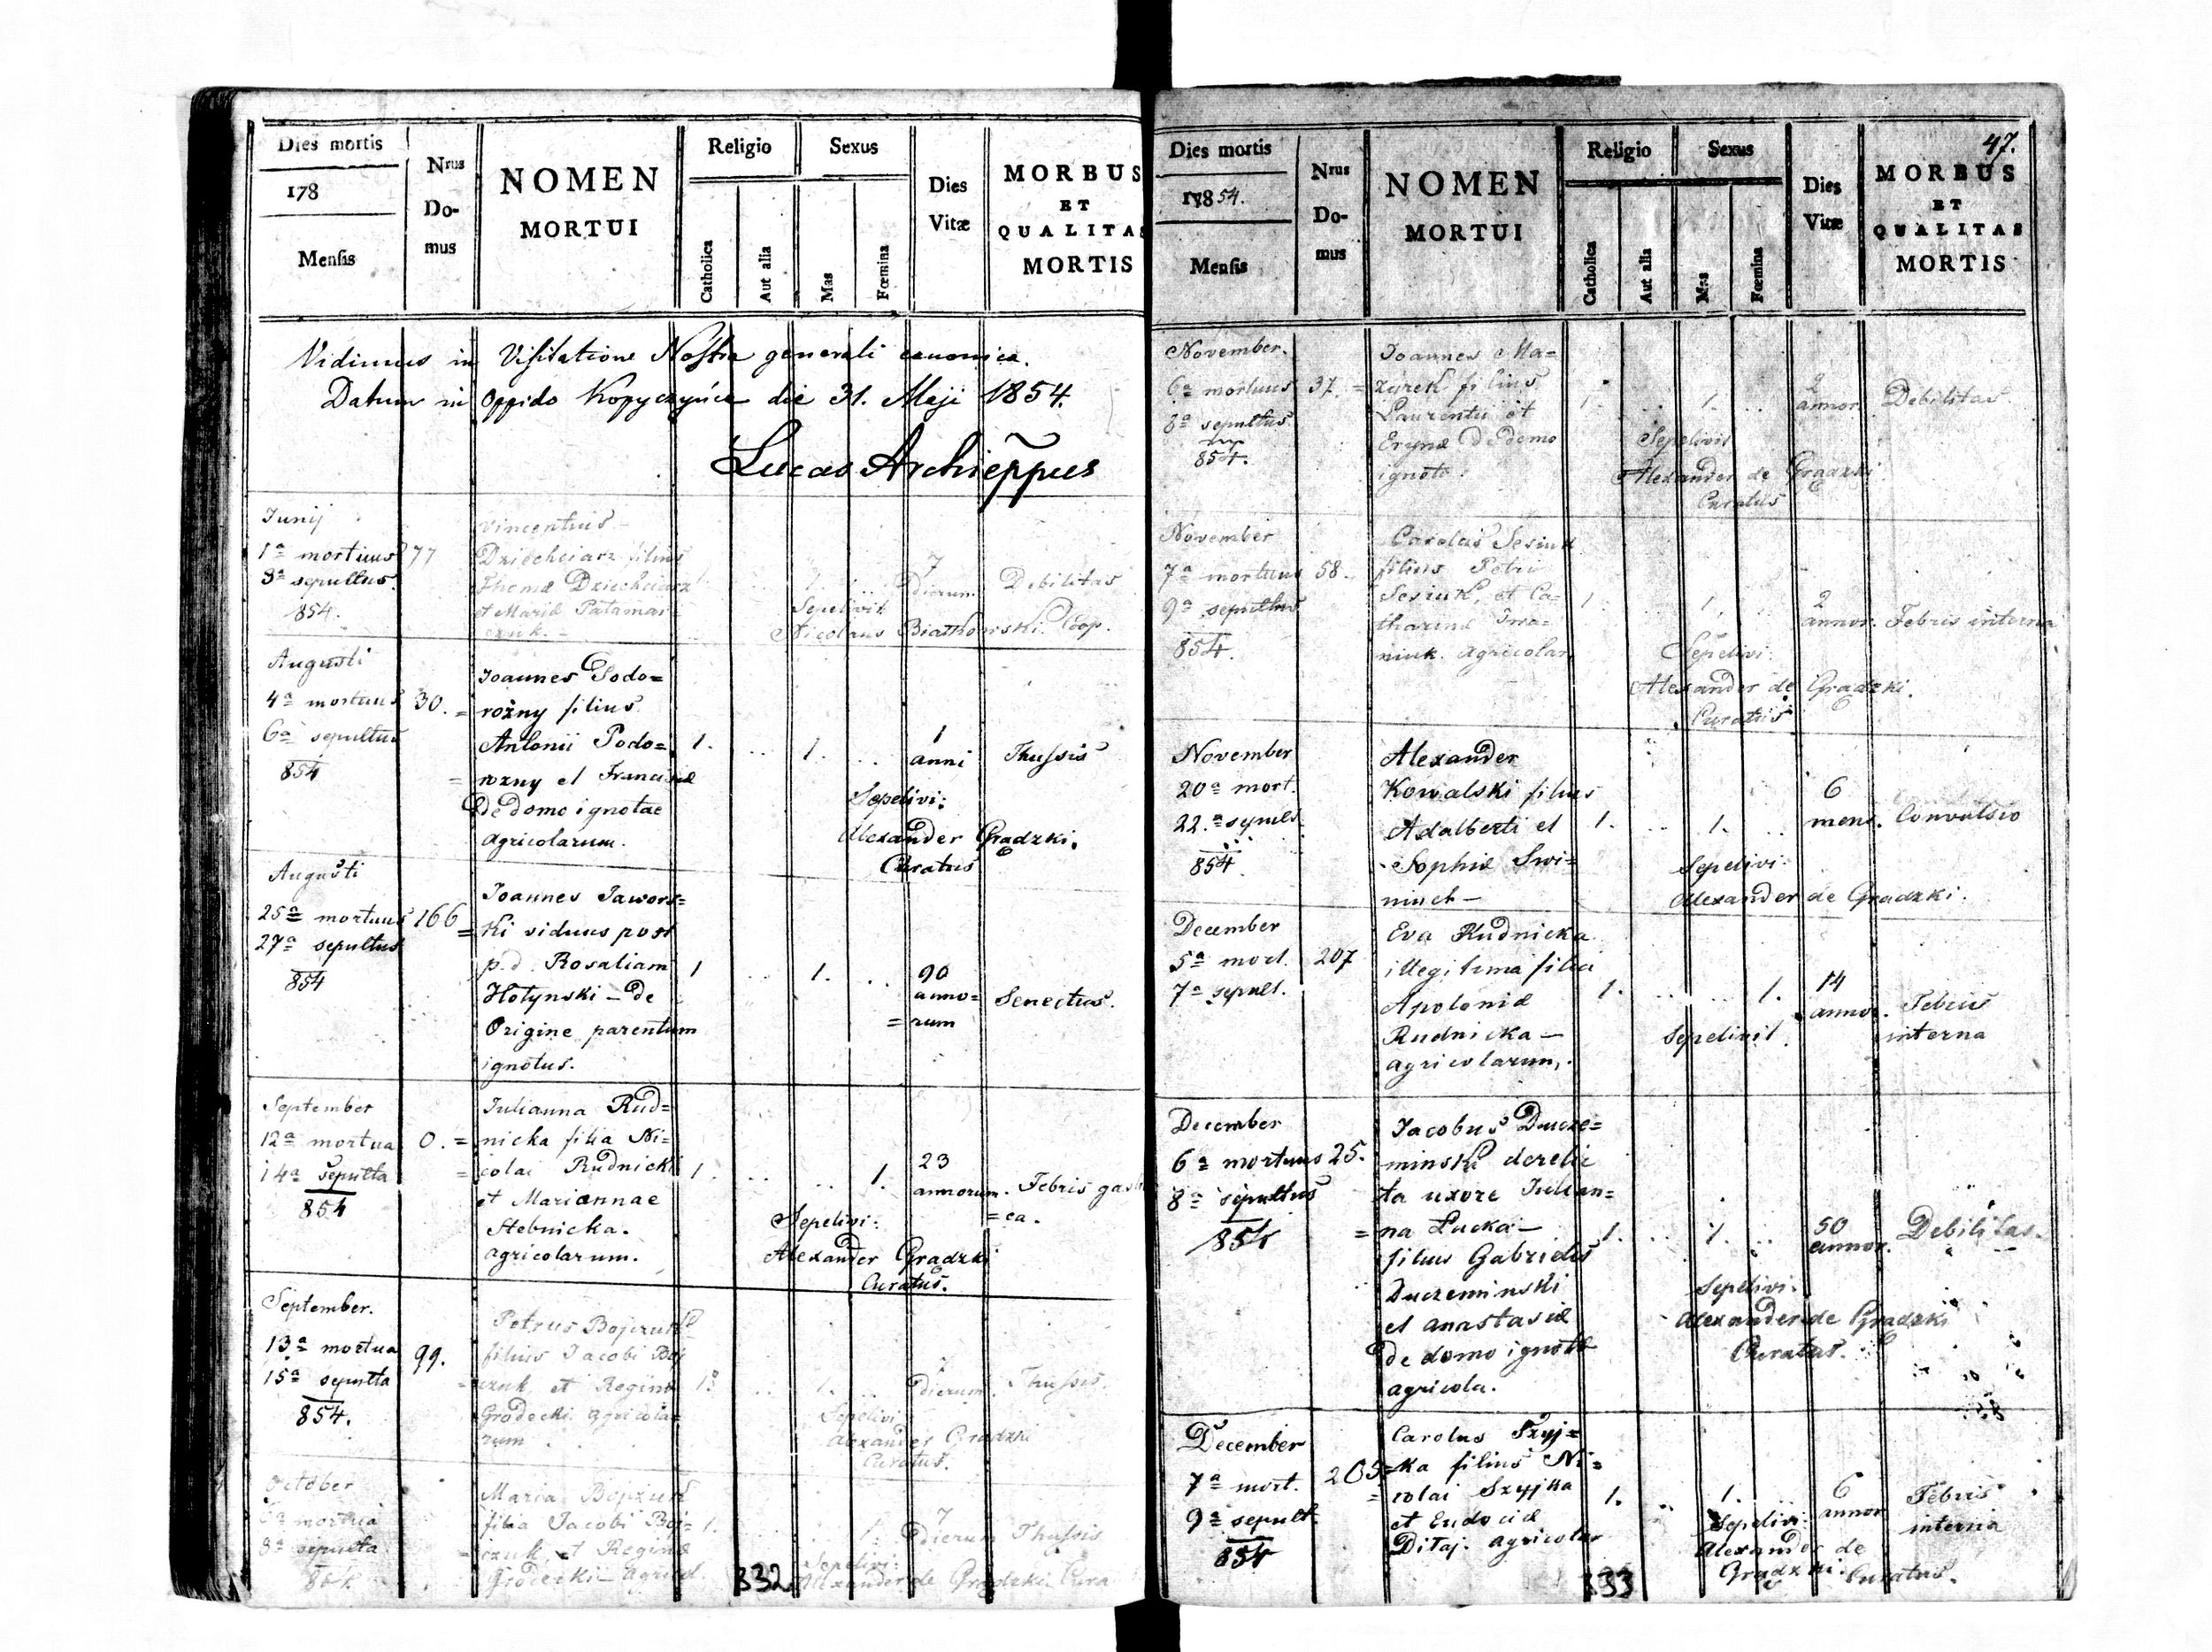 Dies mortis
178
Menſis
Nrus
Do-
mus
NOMEN
MORTUI
Religio
Catholica
Aut alia
Sexus
Mas
Fœmina
Dies
Vitæ
MORBUS
ET
QUALITAS
MORTIS
Vidimus in Viſitatione Noſtra generali canonica.
Datum in Oppido Kopyczyńce die 31. Maji 1854.
Lucas Archieppus
Junij
1a mortuus 77
3a sepultus
854.
Vincentius
Dziechciarz filius
Thomæ Dziechciarz
et Mariæ
1. 7 dierum Debilitas
Sepelivit
Nicolaus Białkowski Coop.
Augusti
4a mortuus 30.
6a sepultus
854
Joannes Podo=
=rożny filius
Antonii Podo=
=rozny et Franciscæ
de domo ignotae
agricolarum.
1. .. 1. .. 1 anni Thuſsis
Sepelivi:
Alexander Gradzki.
Curatus
Augusti
25a mortuus 166
27a sepultus
854
Joannes Jawors=
=ki viduus post
p. d. Rosaliam
Hotynski – de
Origine parentum
ignotus.
1 .. 1. .. 90 anno=
=rum Senectus.
September
12a mortua 0.
14a sepulta
854
Julianna Rud=
=nicka filia Ni=
=colai Rudnicki
et Mariannae
Stebnicka.
agricolarum.
1. .. .. 1. 23 annorum. Febris gast
=ca.
Sepelivi:
Alexander Gradzki
Curatus.
September.
13a mortua 99.
15a sepulta
854.
Petrus Bojczuk
filius Jacobi Boj
=czuk, et Reginæ
Grodecki agricola=
rum
1. .. 1. .. 7 dierum Thuſsis.
Sepelivi
Alexander Gradzki
Curatus.
October
mortua
8a sepulta
854
Maria Bojczuk
filia Jacobi Boj=
=czuk, et Reginæ
Grodecki – agricol.
1. 1. 7 dierum Thuſsis
Sepelivi:
Alexander de Gradzki Cura
332
47.
Dies mortis
17854.
Menſis
Nrus
Do-
mus
NOMEN
MORTUI
Religio
Catholica
Aut alia
Sexus
Mas
Fœmina
Dies
Vitæ
MORBUS
ET
QUALITAS
MORTIS
November.
6a mortuus 37.
8a sepultus
854.
Joannes Ma=
=zurek filius
Laurentii et
de domo
ignotæ.
1. .. 1. .. 2 annor. Debilitas
Sepelivit
Alexander de Gradzki
Curatus
November
7a mortuus 58.
9a sepultus
854.
Carolus Sesiuk
filius Petri
Sesiuk, et Ca=
tharinæ Iwa=
niuk. agricolar.
1. 1. 2 annor. Febris interna
Sepelivi:
Alexander de Gradzki.
Curatus
November
20a mort.
22.a sepult
854
Alexander
Kowalski filius
Adalberti et
Sophiæ Swi=
niuch –
1. .. 1. .. 6 mens. Convulsio
Sepelivi:
Alexander de Gradzki.
December
5a mort. 207
7a sepult.
Eva Rudnicka
illegitima filia
Apoloniæ
Rudnicka –
agricolarum.
1. .. .. 1. 14 annor. Febris
interna
Sepelivit.
December
6a mortuus 25.
8a sepultus
854
Jacobus Ducze=
minski derelic
ta uxore Julian=
=na Lucka –
filius Gabrielis
Duczeminski
et Anastasiæ
de domo ignotæ
agricola.
1. .. 1. .. 50 annor. Debilitas.
Sepelivi:
Alexander de Gradzki
Curatus.
December
7a mort. 205
9a sepult
854
Carolus Szyj=
=ka filius Ni=
=colai Szyjka
et Eudociæ
Ditaj. agricolar
1. .. 1. .. 6 annor Febris
interna
Sepelivi:
Alexander de
Gradzki Curatus.
333